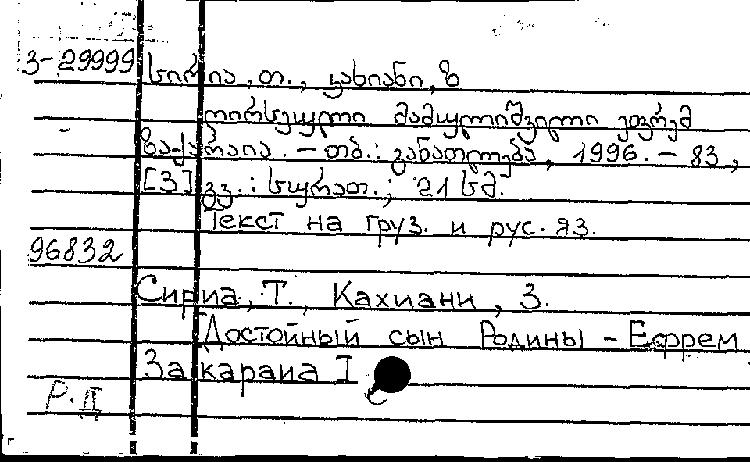 3-29999 სირია, თ., კახიანი, ზ
ღირსეული მამულიშვილი ეფრემ
ზაქარაია. – თბ.: განათლება, 1996. – 83,
[3] გვ.: სურათ.; 21 სმ.
Текст на груз. и рус. яз.
96832
Сириа, Т., Кахиани, З.
Достойный сын Родины – Ефрем
Закараиа I
Р.Д